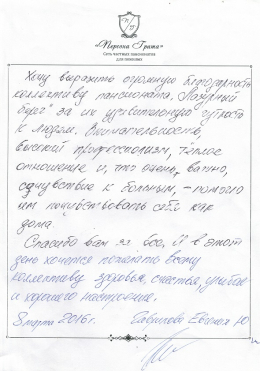 «Термена Грата»
Сеть частных пансионатов
для пожилых
Хочу выразить огромную благодарность
коллективу пансионата „Лазурный
берег" за их удивительную чуткость
к людям. Внимательность,
высокий профессионализм, тёплое
отношение и, что очень важно,
сочувствие к больным, – помогло
им почувствовать себя как
дома.
Спасибо вам за всё. И в этот
день хочется пожелать всему
коллективу здоровья, счастья, улыбок
и хорошего настроения.
8 марта 2016 г. Гаврилова Евгения Ю